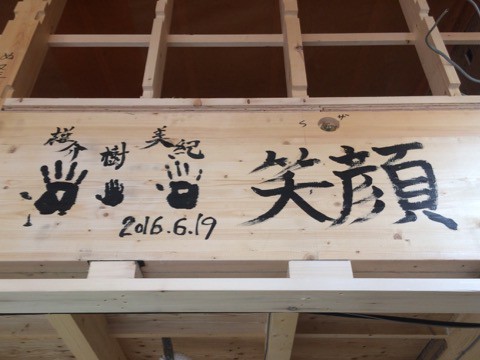 桜介
樹
美紀
2016.6.19
笑顔